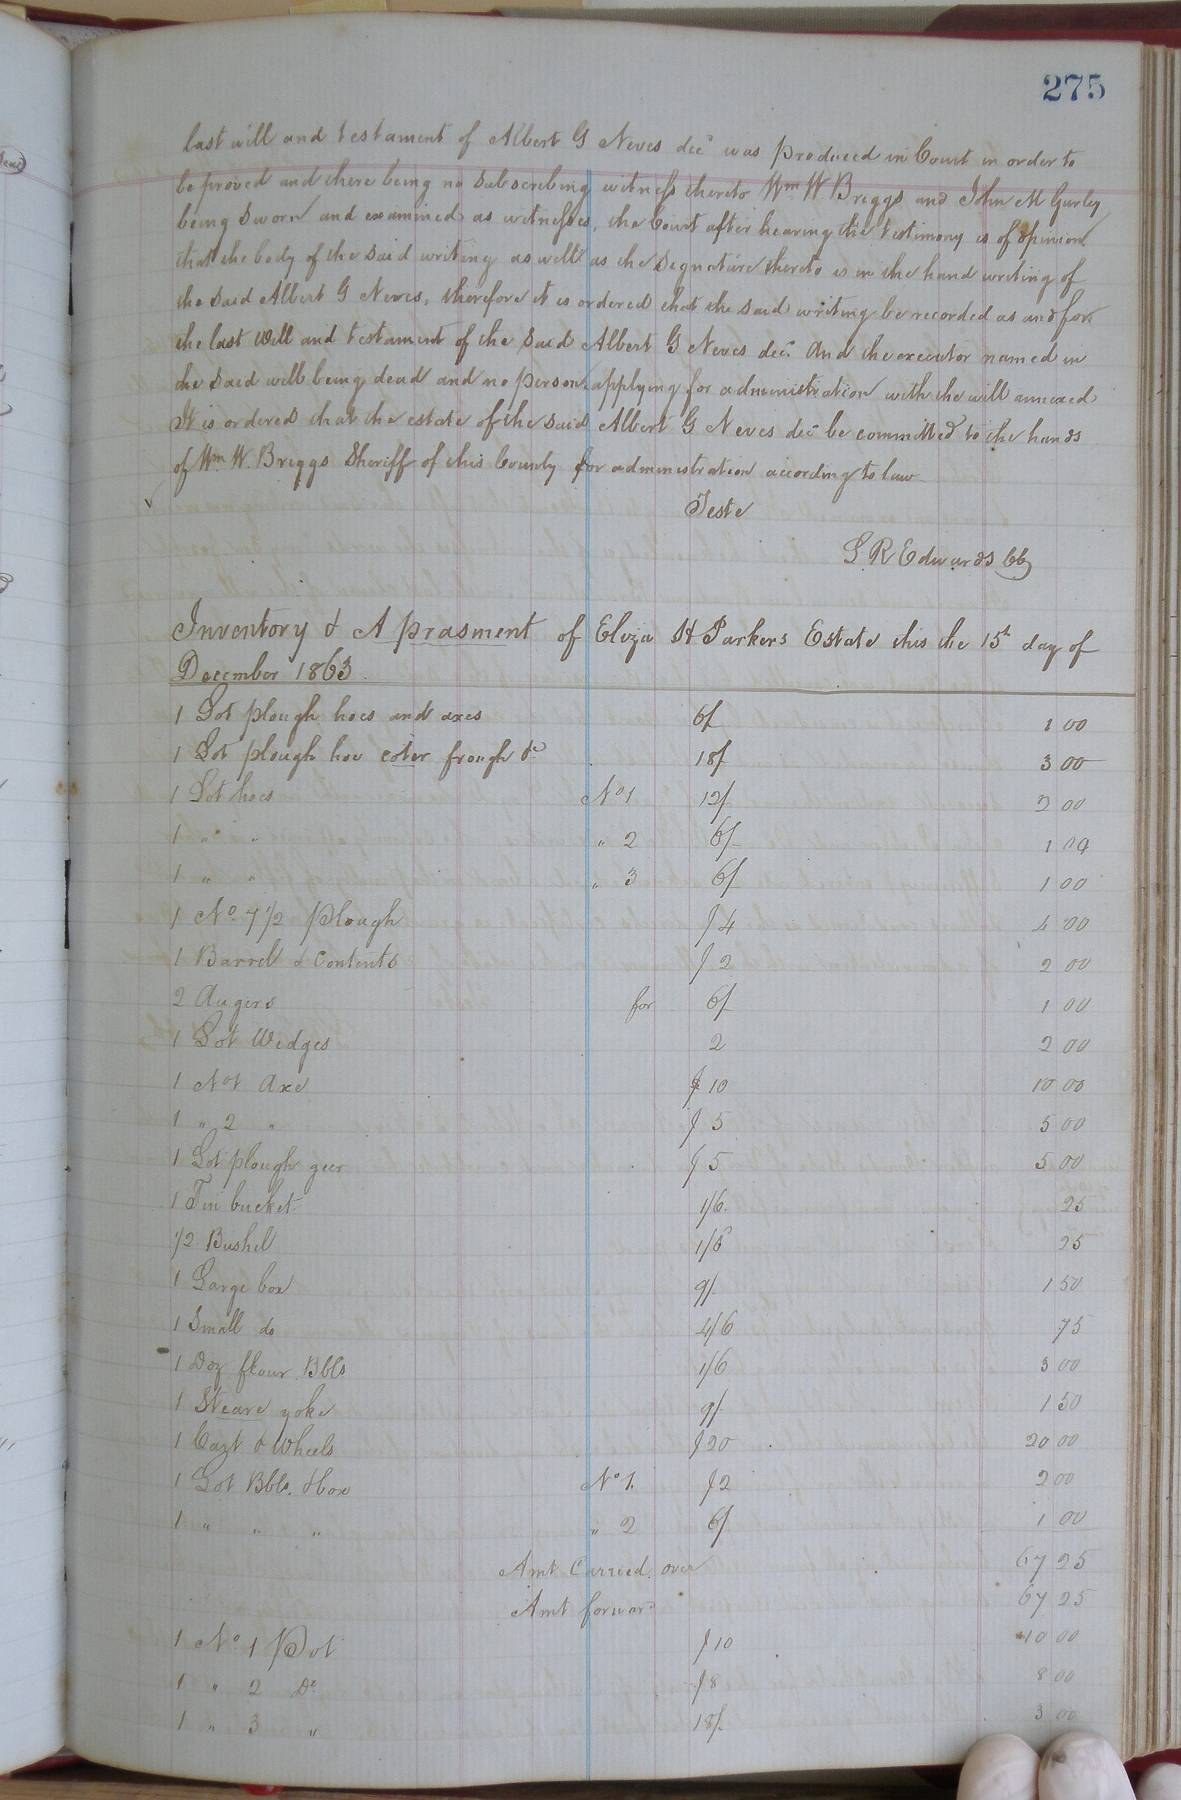 275
last will and testament of Albert G Neves decd was produced in Court in order to
be proved and there being no subscribing witness thereto Wm W Briggs and John M Gurley
being sworn and examined as witnesses, the Court after hearing the testimony is of opinion
that the body of the said writing as well as the signature thereto is in the hand writing of
the said Albert G Neves, therefore it is ordered that the said writing be recorded as and for
the last Will and testament of the said Albert G Neves decd. And the executor named in
the said will being dead and no person applying for administration with the will annexed
It is ordered that the estate of the said Albert G Neves decd be committed to the hands
of Wm W. Briggs Sheriff of this County for administration according to law
Teste
L R Edwards CC
Inventory & Aprasment of Eliza H Parkers Estate this the 15th day of
December 1863.
1 Lot plough hoes and axes 6/ 1 00
1 Lot plough hoe coter frough &c 18/ 3 00
1 Lot hoes No 1 12/ 2 00
1 " " " 2 6/ 1 00
1 " " " 3 6/ 1 00
1 No. 7 1/2 Plough $4 4 00
1 Barrel & Contents $2 2 00
2 Augers for 6/ 1 00
1 Lot Wedges 2 2 00
1 No 1 Axe $10 10 00
1 " 2 " $5 5 00
1 Lot plough geer $5 5 00
1 Tin bucket 1/6 25
1/2 Bushel 1/6 25
1 Large box 9/ 1 50
1 Small do 4/6 75
1 Doz flour Bbls 1/6 3 00
1 Steare yoke 9/ 1 50
1 Cart & Wheels $20 20 00
1 Lot Bbls. & box No 1. $2 2 00
1 " " " " 2 6/ 1 00
Amt Carried over 67 25
Amt forward 67 25
1 No 1 Pot $10 10 00
1 " 2 Do $8 8 00
1 " 3 " 18/ 3 00